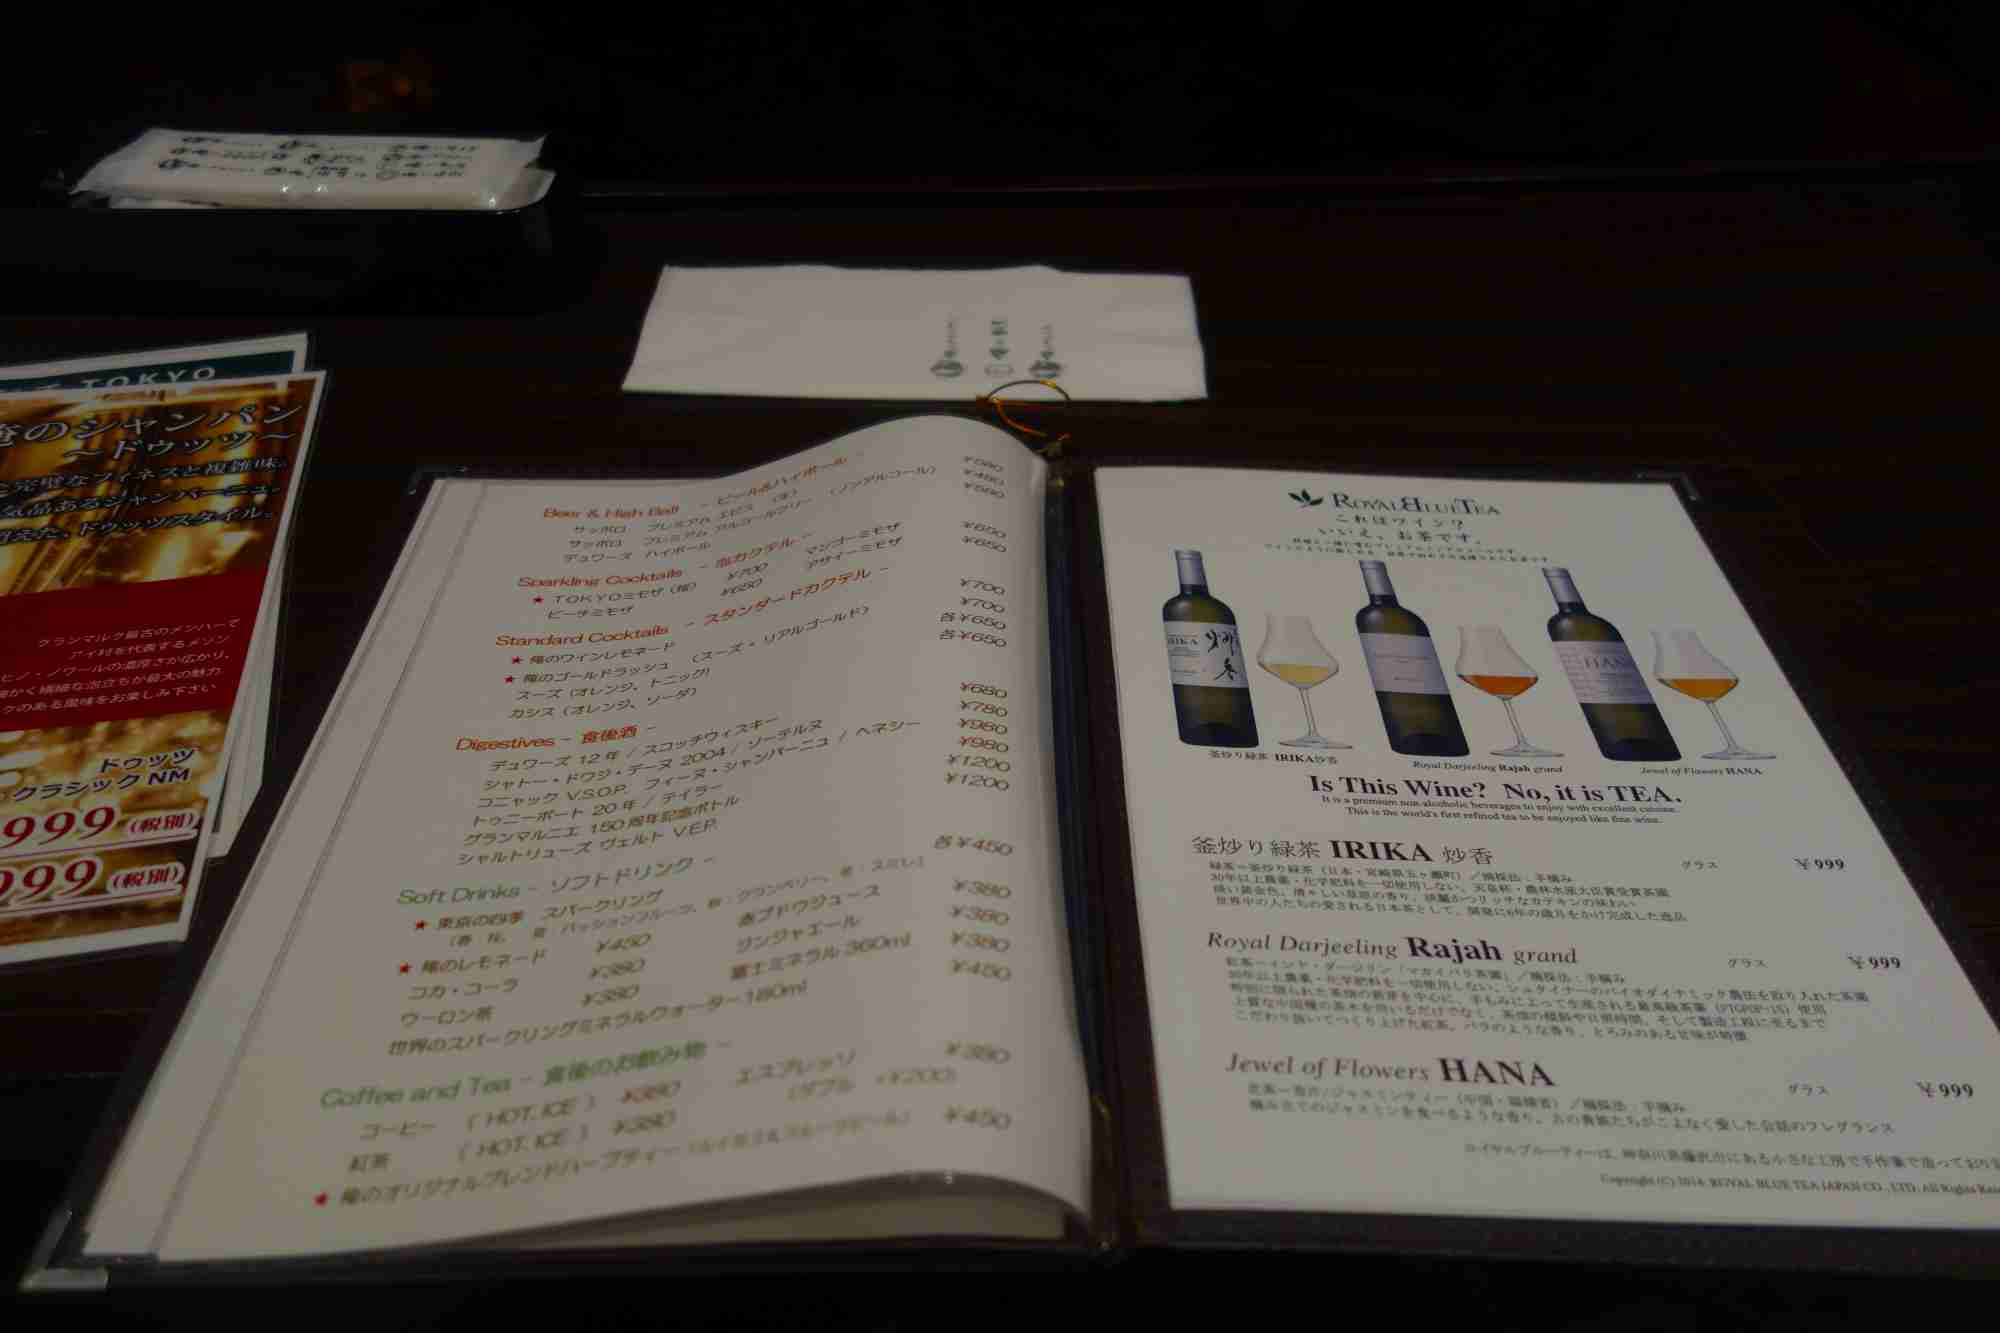 TOKYO
俺のシャンパン
～ドゥッツ～
完璧なフィネスと複雑味。
気品あるシャンパーニュ。
ドゥッツスタイル。
グランマルク最古のメンバーで
アイ村を代表するメゾン
ピノ・ノワールの濃厚さが広がり、
細かく繊細な泡立ちが最大の魅力
のある風味をお楽しみ下さい
ドゥッツ
クラシック NM
999 (税別)
999 (税別)
Beer & High Ball - ビール&ハイボール -
サッポロ プレミアム エビス (生) ¥580
サッポロ プレミアム アルコールフリー (ノンアルコール) ¥480
デュワーズ ハイボール ¥580
Sparkling Cocktails - 泡カクテル -
★ TOKYOミモザ (桜) ¥700 マンゴーミモザ ¥650
ピーチミモザ ¥650 アサイーミモザ ¥650
Standard Cocktails - スタンダードカクテル -
★ 俺のワインレモネード ¥700
★ 俺のゴールドラッシュ (スーズ・リアルゴールド) ¥700
スーズ (オレンジ、トニック) 各¥650
カシス (オレンジ、ソーダ) 各¥650
Digestives - 食後酒 -
デュワーズ 12年 / スコッチウィスキー ¥680
シャトー・ドワジ・デーヌ 2004 / ソーテルヌ ¥780
コニャック V.S.O.P. フィーヌ・シャンパーニュ / ヘネシー ¥980
トゥニーポート 20年 / テイラー ¥980
グランマルニエ 150周年記念ボトル ¥1200
シャルトリューズ ヴェルト V.E.P. ¥1200
Soft Drinks - ソフトドリンク -
★ 東京の四季 スパークリング 各¥450
(春：桜、 夏：パッションフルーツ、秋：クランベリー、冬：スミレ)
★ 俺のレモネード ¥450 赤ブドウジュース ¥380
コカ・コーラ ¥380 ジンジャエール ¥380
ウーロン茶 ¥380 富士ミネラル 360ml ¥380
世界のスパークリングミネラルウォーター 180ml ¥450
Coffee and Tea - 食後のお飲み物 -
コーヒー ( HOT, ICE ) ¥380 エスプレッソ ¥380
紅茶 ( HOT, ICE ) ¥380 (ダブル +¥200)
★ 俺のオリジナルブレンドハーブティー ¥450
ROYALBLUETEA
これはワイン?
いいえ、お茶です。
IRIKA
HANA
釜炒り緑茶 IRIKA 炒香
Royal Darjeeling Rajah grand
Jewel of Flowers HANA
Is This Wine? No, it is TEA.
It is a premium non-alcoholic beverages to enjoy with excellent cuisine.
This is the world's first refined tea to be enjoyed like fine wine.
釜炒り緑茶 IRIKA 炒香 グラス ¥999
緑茶－釜炒り緑茶 (日本・宮崎県五ヶ瀬町) ／摘採法：手摘み
30年以上農薬・化学肥料を一切使用しない、天皇杯・農林水産大臣賞受賞茶園
淡い黄金色、清々しい草原の香り、淡麗かつリッチなカテキンの味わい
世界中の人たちの愛される日本茶として、開発に6年の歳月をかけ完成した逸品
Royal Darjeeling Rajah grand グラス ¥999
紅茶－インド・ダージリン「マカイバリ茶園」／摘採法：手摘み
30年以上農薬・化学肥料を一切使用しない、シュタイナーのバイオダイナミック農法を取り入れた茶園
特別に限られた茶畑の新芽を中心に、手もみによって生産される最高級茶葉 (FTGFOP-1S) 使用
上質な中国種の茶木を用いるだけでなく、茶畑の傾斜や日照時間、そして製造工程に至るまで
こだわり抜いてつくり上げた紅茶。バラのような香り、とろみのある甘味が特徴
Jewel of Flowers HANA グラス ¥999
花茶－香片/ジャスミンティー (中国・福建省) ／摘採法：手摘み
摘み立てのジャスミンを食べるような香り。古の貴族たちがこよなく愛した会話のフレグランス
ロイヤルブルーティーは、神奈川県藤沢市にある小さな工房で手作業で造っており
Copyright (C) 2014 ROYAL BLUE TEA JAPAN CO., LTD. All Rights